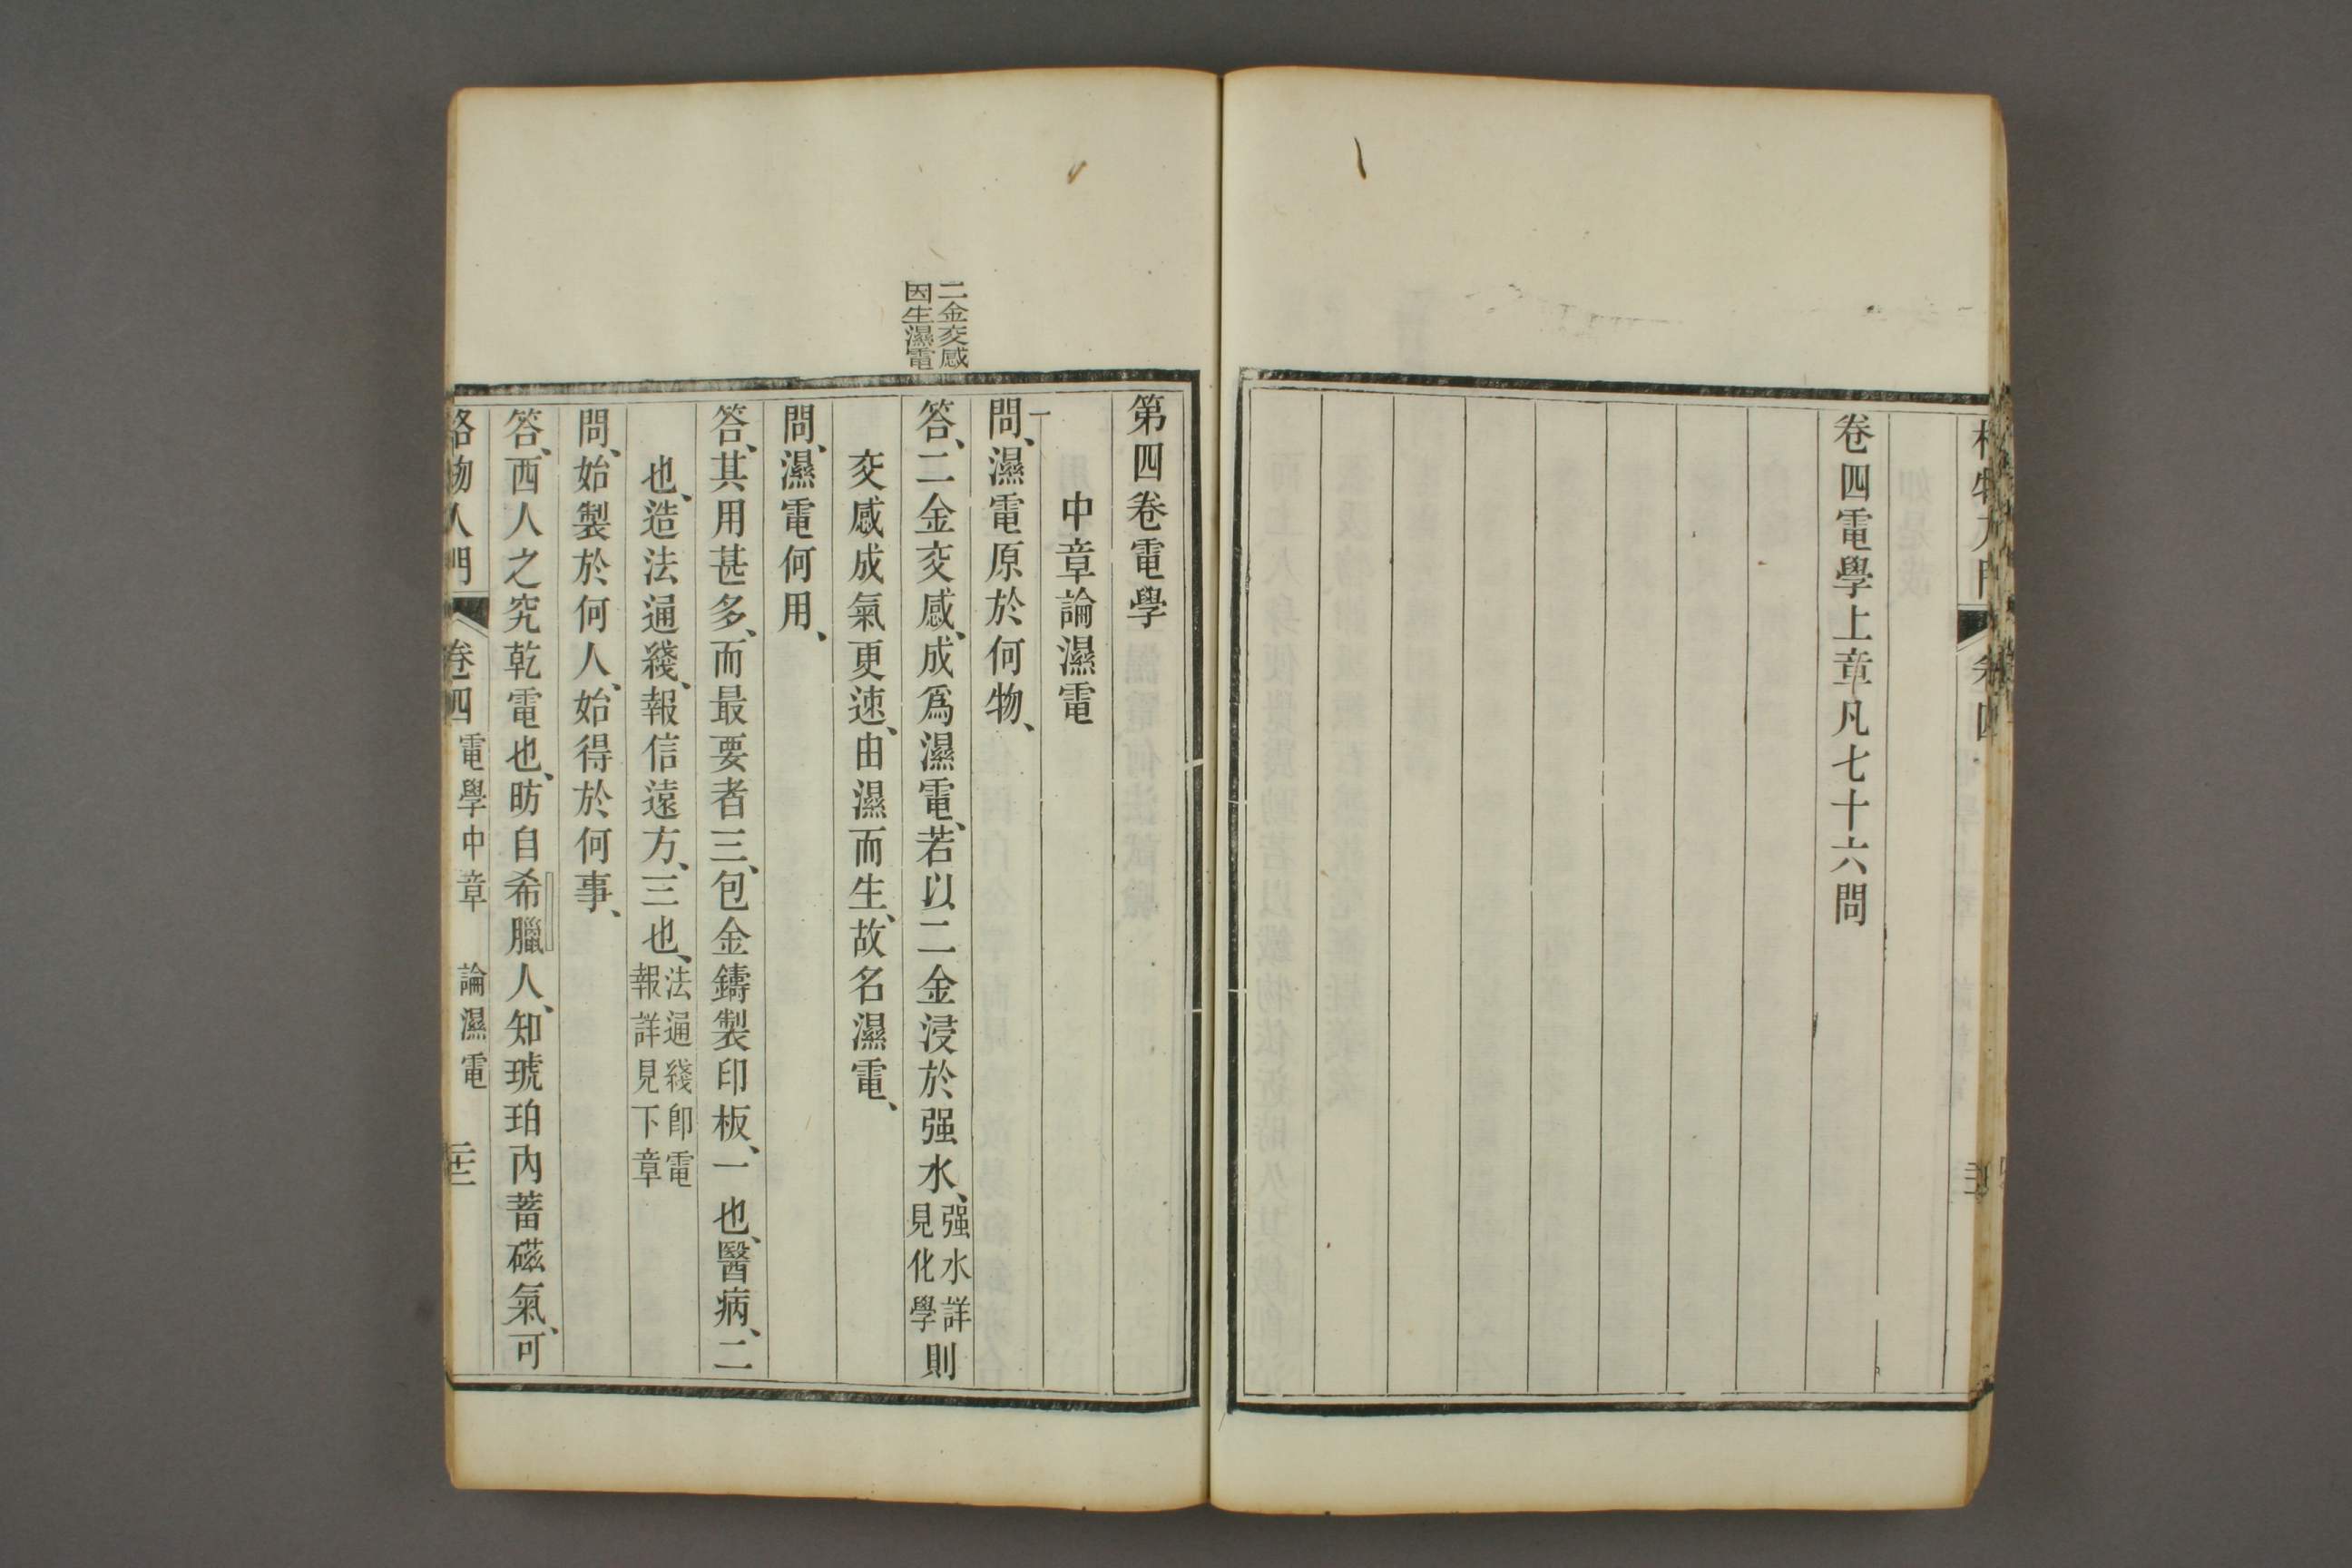 卷四電學上章凡七十六問
二金交感
因生濕電
第四卷電學
中章論濕電
一
問、濕電原於何物、
答、二金交感、成爲濕電、若以二金浸於强水、强水詳見化學則
交感成氣更速、由濕而生、故名濕電、
問、濕電何用、
答、其用甚多、而最要者三、包金鑄製印板、一也、醫病、二
也、造法通綫、報信遠方、三也、法通綫卽電報詳見下章
問、始製於何人、始得於何事、
答、西人之究乾電也、昉自希臘人、知琥珀內蓄磁氣、可
格物入門 卷四 電學中章 論濕電